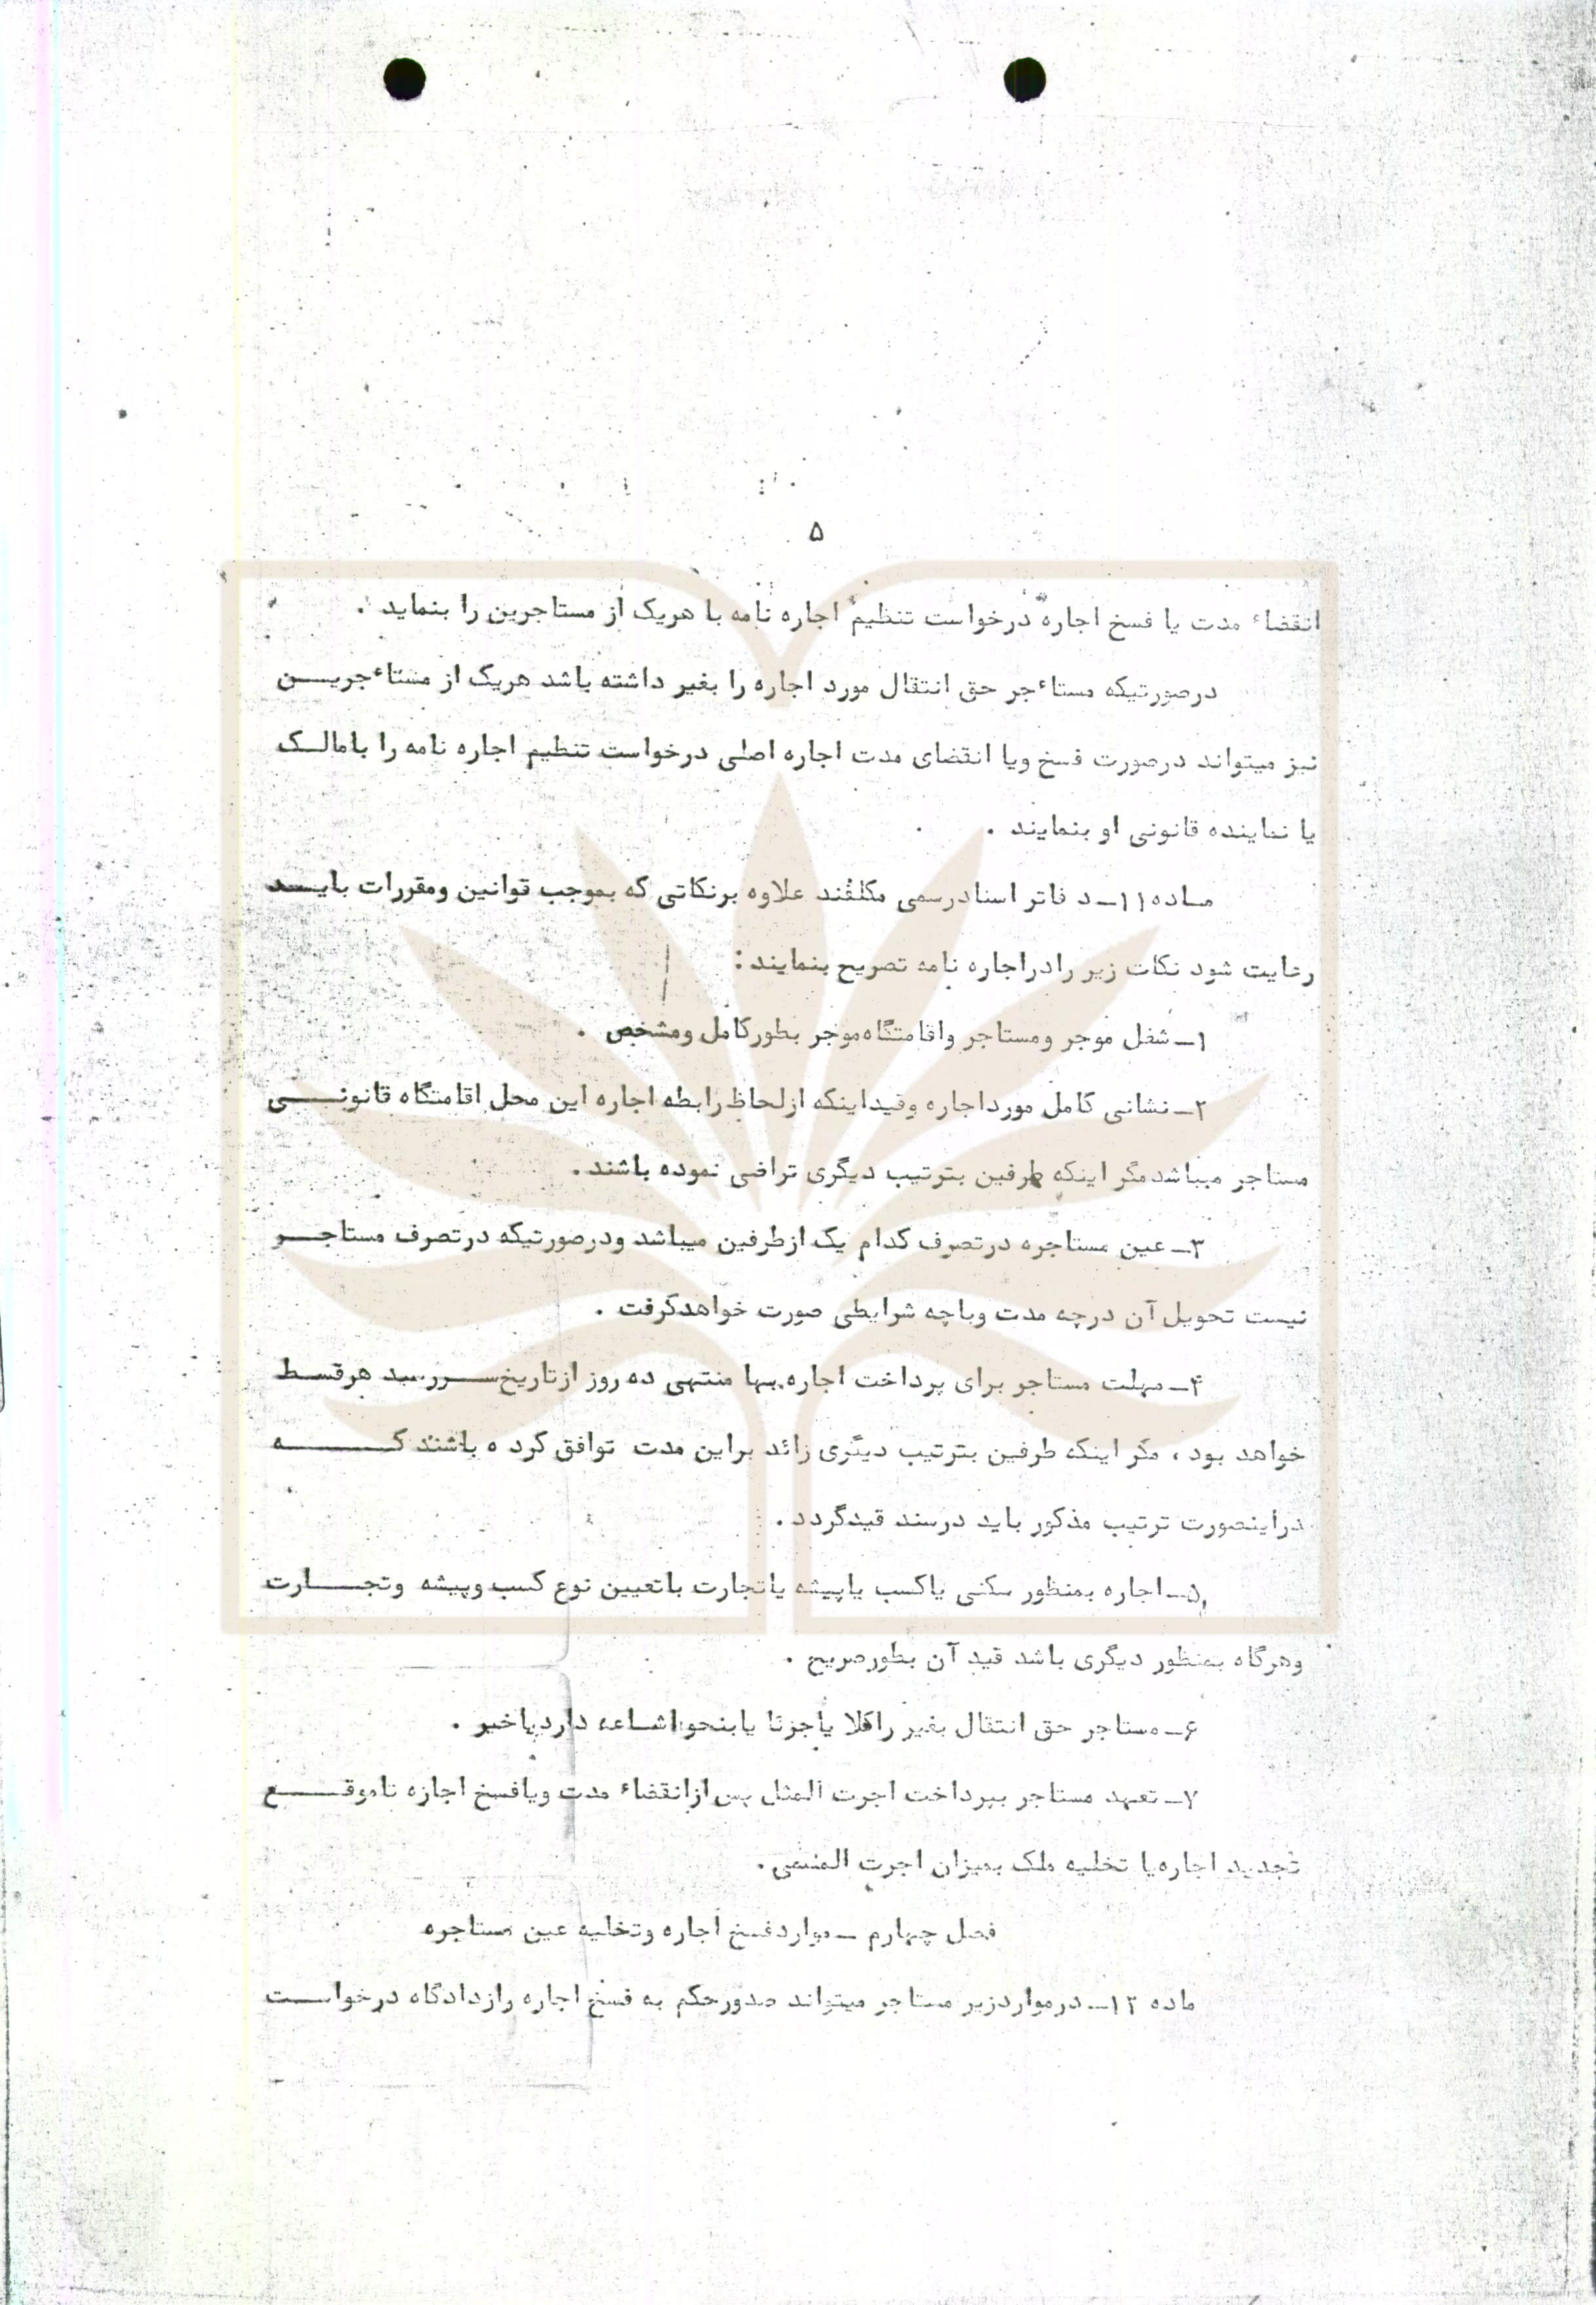 ۵
انقضاء مدت یا فسخ اجاره درخواست تنظیم اجاره نامه با هریک از مستاجرین را بنماید .
درصورتیکه مستاءجر حق انتقال مورد اجاره را بغیر داشته باشد هریک از مستاءجریـــن
نیز میتواند درصورت فسخ ویا انقضای مدت اجاره اصلی درخواست تنظیم اجاره نامه را بامالـک
یا نماینده قانونی او بنمایند .
مـاده ۱۱ـ د فاتر اسنادرسمی مکلفند علاوه برنکاتی که بموجب قوانین ومقررات بایـــد
رعایت شود نکات زیر رادراجاره نامه تصریح بنمایند :
۱ـ شغل موجر ومستاجر واقامتگاه موجر بطورکامل ومشخص .
۲ـ نشانی کامل مورداجاره وقیداینکه ازلحاظ رابطه اجاره این محل اقامتگاه قانونـــی
مستاجر میباشدمگر اینکه طرفین بترتیب دیگری تراضی نموده باشند .
۳ـ عین مستاجره درتصرف کدام یک ازطرفین میباشد ودرصورتیکه درتصرف مستاجـــر
نیست تحویل آن درچه مدت وباچه شرایطی صورت خواهدگرفت .
۴ـ مهلت مستاجر برای پرداخت اجاره بها منتهی ده روز ازتاریخ ســررسید هرقسـط
خواهد بود ، مگر اینکه طرفین بترتیب دیگری زائد براین مدت توافق کرد ه باشند کــــــه
دراینصورت ترتیب مذکور باید درسند قیدگردد .
۵ـ اجاره بمنظور سکنی یاکسب یاپیشه یاتجارت باتعیین نوع کسب وپیشه وتجـــارت
وهرگاه بمنظور دیگری باشد قید آن بطورصریح .
۶ـ مستاجر حق انتقال بغیر راکلا یاجزئا یابنحواشـاعه داردیاخیر .
۷ـ تعهد مستاجر بپرداخت اجرت المثل پس ازانقضاء مدت ویافسخ اجازه تاموقــــع
تجدید اجاره یا تخلیه ملک بمیزان اجرت المسمی .
فصل چهارم ـ مواردفسخ اجاره وتخلیه عین مستاجره
ماده ۱۲ـ درمواردزیر مستاجر میتواند صدورحکم به فسخ اجاره رازدادگاه درخواســت